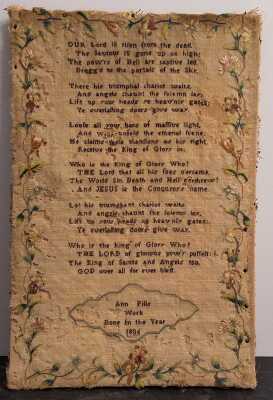 OUR Lord is risen from the dead,
The Saviour is gone up on high;
The pow'rs of Hell are captive led
Dragg'd to the portals of the Sky.
There his triumphal chariot waits,
And angels chaunt the solemn lay,
Lift up your heads ye heav'nly gates;
Ye everlasting doors give way.
Loose all your bars of massive light,
And wide unfold the etherial scene,
He claims these mansions as his right,
Receive the King of Glory in.
Who is the King of Glory Who?
THE Lord that all his foes o'ercame,
The World Sin Death and Hell o'erthrew
And JESUS is the Conquerors name.
Lo! his triumphant chariot waits
And angels chaunt the solemn lay,
Lift up your heads ye heav'nly gates;
Ye everlasting doors give way.
Who is the King of Glory Who?
THE LORD of glorious pow'r possest
The King of Saints and Angels too,
GOD over all for ever blest.
Ann
Work
Done in the Year